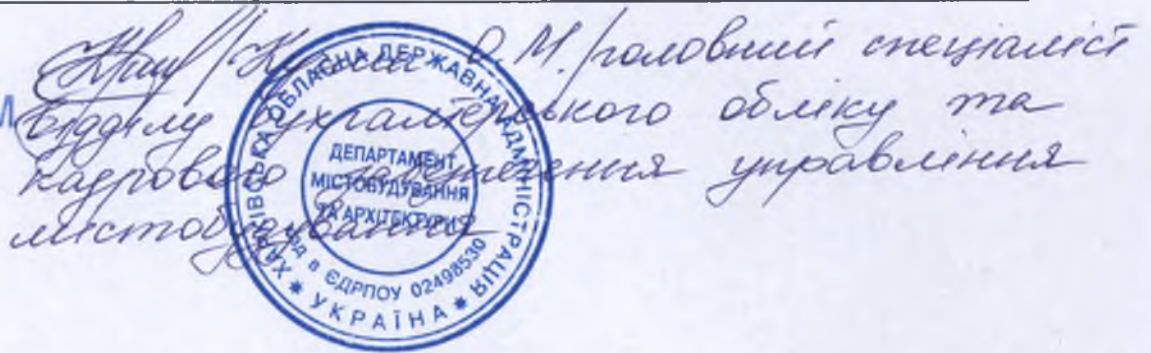 О. М. / головний спеціаліст
відділу бухгалтерського обліку та
кадрового забезпечення управління
містобудування
ХАРКІВСЬКА ОБЛАСНА ДЕРЖАВНА АДМІНІСТРАЦІЯ
* УКРАЇНА *
ДЕПАРТАМЕНТ
МІСТОБУДУВАННЯ
ТА АРХІТЕКТУРИ
ЄДРПОУ 02498530